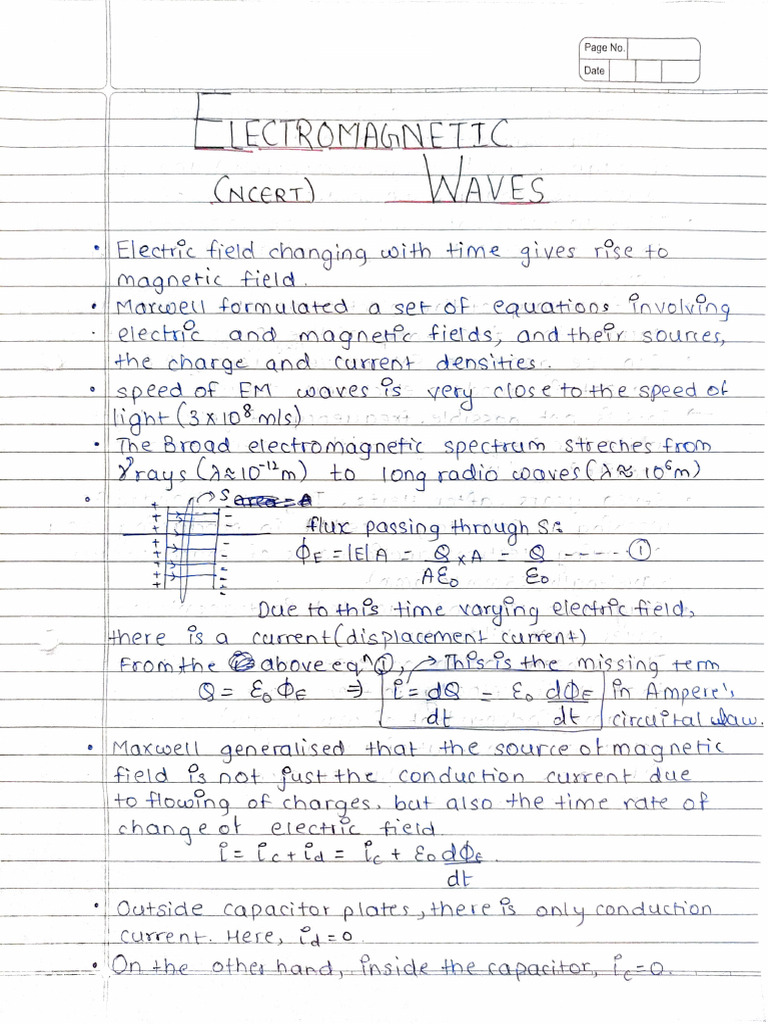 Page No.
Date
ELECTROMAGNETIC
(NCERT) WAVES
• Electric field changing with time gives rise to
magnetic field.
• Maxwell formulated a set of equations involving
electric and magnetic fields, and their sources,
the charge and current densities.
• speed of EM waves is very close to the speed of
light (3×10⁸ m/s)
• The Broad electromagnetic spectrum streches from
γrays (λ≈10⁻¹²m) to long radio waves (λ≈ 10⁶m)
S area = A
flux passing through S:
ΦE = |E|A = Q/Aε₀ × A = Q/ε₀ ----- ①
Due to this time varying electric field,
there is a current (displacement current)
From the above eqⁿ ①, → This is the missing term
Q = ε₀ΦE ⇒ i = dQ/dt = ε₀ dΦE/dt in Ampere's
circuital law.
• Maxwell generalised that the source of magnetic
field is not just the conduction current due
to flowing of charges, but also the time rate of
change of electric field.
i = ic + id = ic + ε₀ dΦE/dt
• Outside capacitor plates, there is only conduction
current. Here, id = 0
• On the other hand, inside the capacitor, ic = 0.